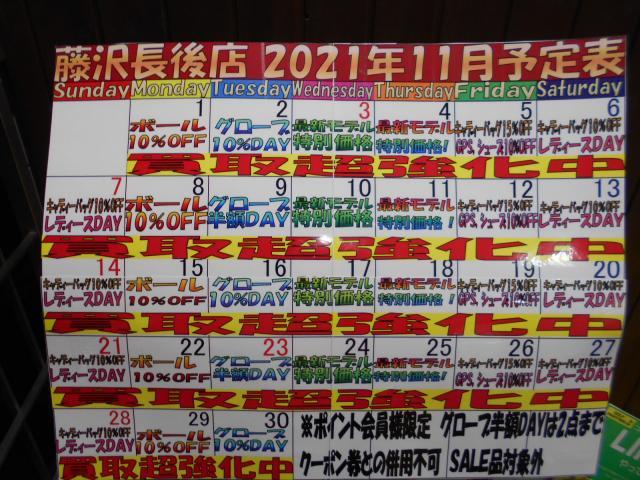 藤沢長後店 2021年11月予定表
Sunday Monday Tuesday Wednesday Thursday Friday Saturday
1 2 3 4 5 6
ボール 10%OFF
グローブ 10%OFF
最新モデル 特別価格
最新モデル 特別価格!
キャディーバッグ15%OFF GPS,シューズ10%OFF
キャディーバッグ10%OFF レディースDAY
買取超強化中
7 8 9 10 11 12 13
キャディーバッグ10%OFF レディースDAY
ボール 10%OFF
グローブ 半額DAY
最新モデル 特別価格
最新モデル 特別価格!
キャディーバッグ15%OFF GPS,シューズ10%OFF
キャディーバッグ10%OFF レディースDAY
買取超強化中
14 15 16 17 18 19 20
キャディーバッグ10%OFF レディースDAY
ボール 10%OFF
グローブ 10%DAY
最新モデル 特別価格
最新モデル 特別価格!
キャディーバッグ15%OFF GPS,シューズ10%OFF
キャディーバッグ10%OFF レディースDAY
買取超強化中
21 22 23 24 25 26 27
キャディーバッグ10%OFF レディースDAY
ボール 10%OFF
グローブ 半額DAY
最新モデル 特別価格
最新モデル 特別価格!
キャディーバッグ15%OFF GPS,シューズ10%OFF
キャディーバッグ10%OFF レディースDAY
買取超強化中
28 29 30
キャディーバッグ10%OFF レディースDAY
ボール 10%OFF
グローブ 10%DAY
買取超強化中
※ポイント会員様限定 グローブ半額DAYは2点まで
クーポン券との併用不可 SALE品対象外